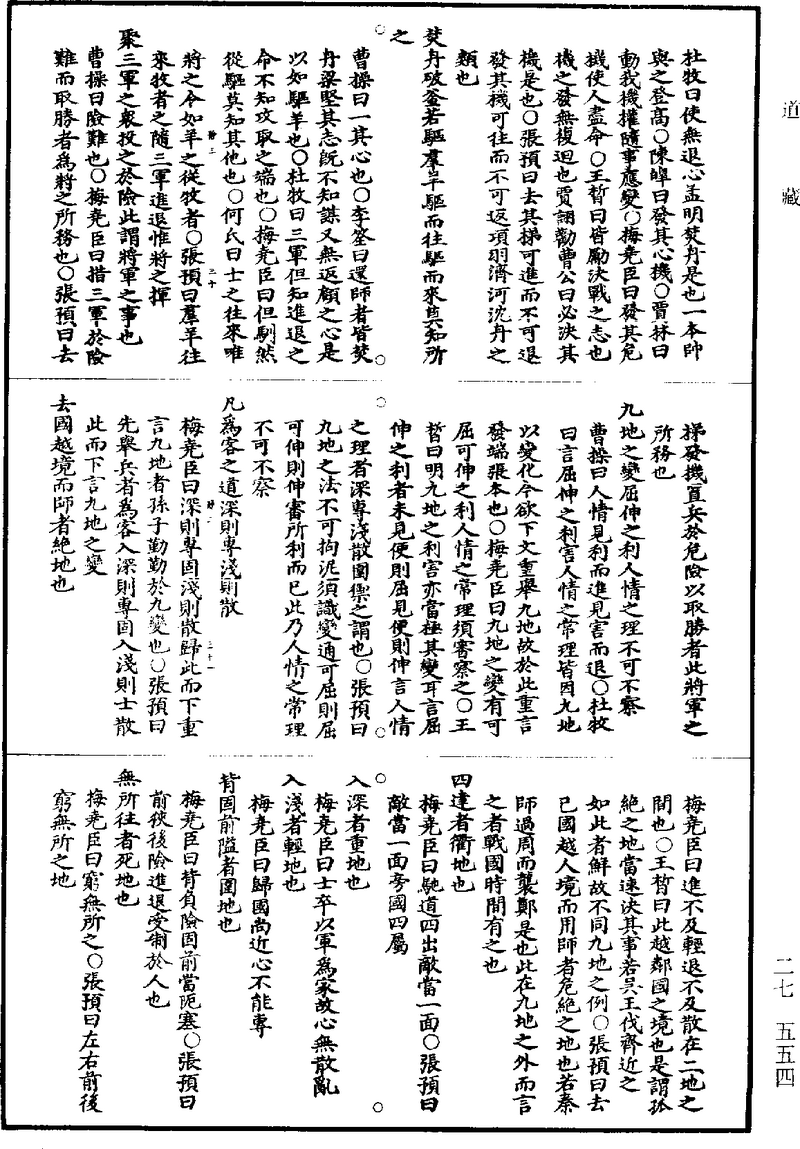 道藏
杜牧曰使無退心孟明焚舟是也一本帥
與之登高〇陳皥曰發其心機〇賈林曰
動我機權隨事應變〇梅堯臣曰發其危
機使人盡命〇王晳曰皆勵決戰之志也
機之發無復迴也賈詡勸曹公曰必決其
機是也〇張預曰去其梯可進而不可退
發其機可往而不可返項羽濟河沈舟之
類也
焚舟破釜若驅羣羊驅而往驅而來莫知所
之
曹操曰一其心也〇李筌曰還師者皆焚
舟梁堅其志旣不知謀又無返顧之心是
以如驅羊也〇杜牧曰三軍但知進退之
命不知攻取之端也〇梅堯臣曰但馴然
從驅莫知其他也〇何氏曰士之往來唯
將之令如羊之從牧者〇張預曰羣羊往
來牧者之隨三軍進退惟將之揮
聚三軍之衆投之於險此謂將軍之事也
曹操曰險難也〇梅堯臣曰措三軍於險
難而取勝者爲將之所務也〇張預曰去
梯發機置兵於危險以取勝者此將軍之
所務也
九地之變屈伸之利人情之理不可不察
曹操曰人情見利而進見害而退〇杜牧
曰言屈伸之利害人情之常理皆因九地
以變化今欲下文重舉九地故於此重言
發端張本也〇梅堯臣曰九地之變有可
屈可伸之利人情之常理須審察之〇王
晳曰明九地之利害亦當極其變耳言屈
伸之利者未見便則屈見便則伸言人情
之理者深專淺散圍禦之謂也〇張預曰
九地之法不可拘泥須識變通可屈則屈
可伸則伸審所利而已此乃人情之常理
不可不察
凡爲客之道深則專淺則散
梅堯臣曰深則專固淺則散歸此而下重
言九地者孫子勤勤於九變也〇張預曰
先舉兵者爲客入深則專固入淺則士散
此而下言九地之變
去國越境而師者絶地也
梅堯臣曰進不及輕退不及散在二地之
間也〇王晳曰此越鄰國之境也是謂孤
絶之地當速決其事若吳王伐齊近之
如此者鮮故不同九地之例〇張預曰去
己國越人境而用師者危絶之地也若秦
師過周而襲鄭是也此在九地之外而言
之者戰國時間有之也
四達者衢地也
梅堯臣曰馳道四出敵當一面〇張預曰
敵當一面旁國四屬
入深者重地也
梅堯臣曰士卒以軍爲家故心無散亂
入淺者輕地也
梅堯臣曰歸國尚近心不能專
背固前隘者圍地也
梅堯臣曰背負險固前當阨塞〇張預曰
前狹後險進退受制於人也
無所往者死地也
梅堯臣曰窮無所之〇張預曰左右前後
窮無所之地
二七 五五四